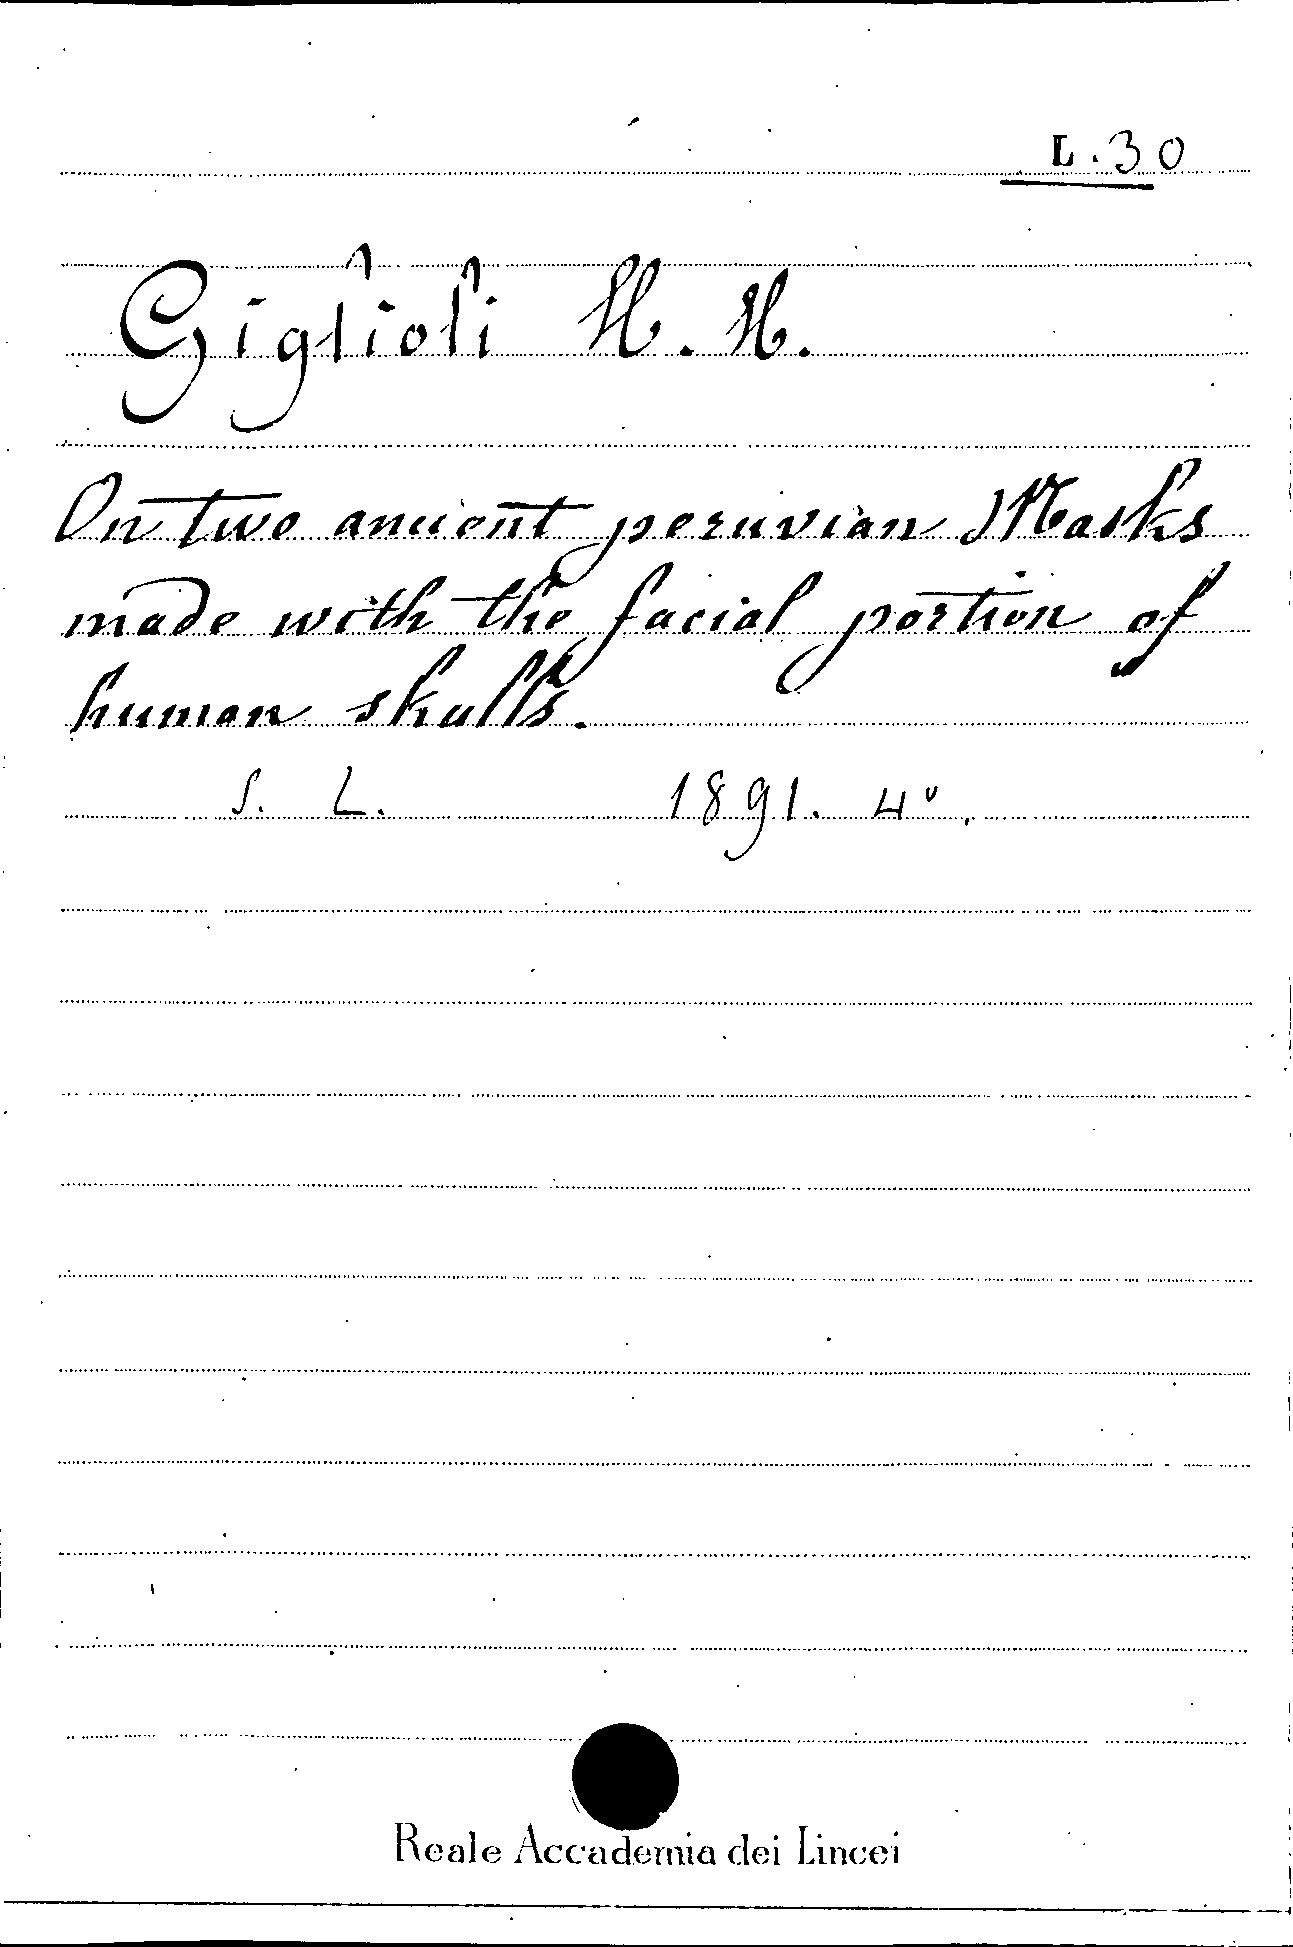 L. 30
Giglioli H. H.
On two ancient peruvian Masks
made with the facial portion of
human skulls.
S. L. 1891. 4°.
Reale Accademia dei Lincei